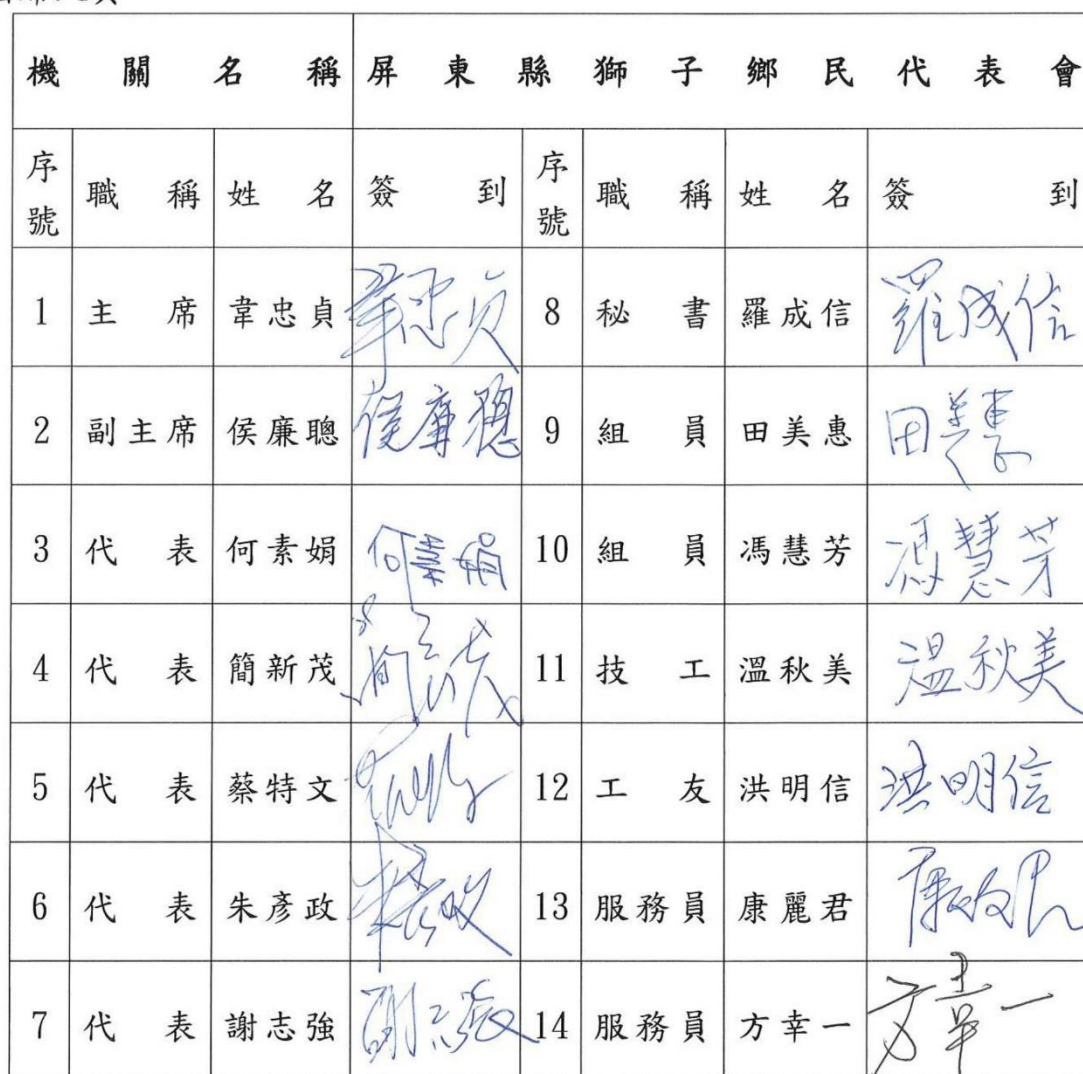 機關名稱 屏東縣獅子鄉民代表會
序號 職稱 姓名 簽到 序號 職稱 姓名 簽到
1 主席 韋忠貞 韋忠貞 8 秘書 羅成信 羅成信
2 副主席 侯廉聰 侯廉聰 9 組員 田美惠 田美惠
3 代表 何素娟 何素娟 10 組員 馮慧芳 馮慧芳
4 代表 簡新茂 11 技工 溫秋美 溫秋美
5 代表 蔡特文 12 工友 洪明信 洪明信
6 代表 朱彥政 13 服務員 康麗君
7 代表 謝志強 謝志強 14 服務員 方幸一 方幸一